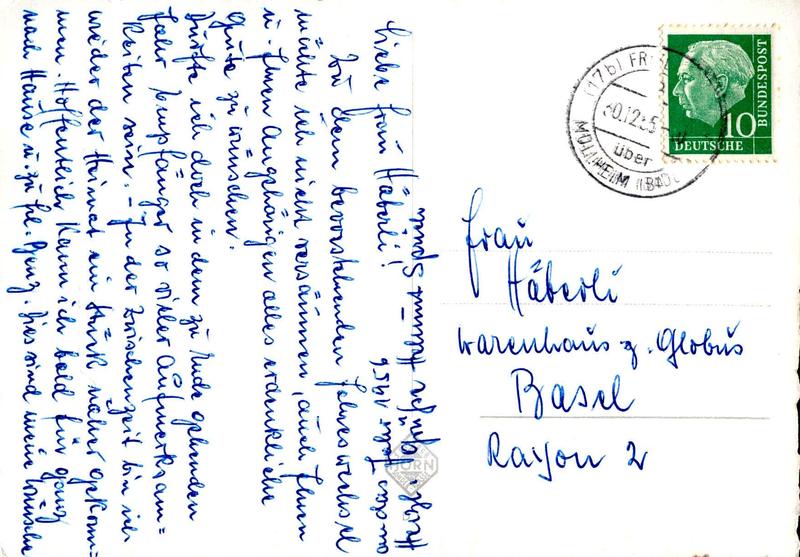 Liebe Frau Häberli!
Zu dem bevorstehenden Jahreswechsel
möchte ich nicht versäumen, auch Ihnen
u. Ihren Angehörigen alles erdenkliche
Gute zu wünschen.
Durfte ich doch in dem zu Ende gehenden
Jahr Empfänger so vieler Aufmerksam=
keiten sein. – In der Zwischenzeit bin ich
wieder der Heimat ein Stück näher gekom=
men. Hoffentlich kann ich bald für ganz
nach Hause u. zu Dies sind meine Wünsche
an das Jahr 1956
Hermann
HORN
10
DEUTSCHE
BUNDESPOST
(17b)
über
MÜLLHEIM (BAD
Frau
Häberli
Warenhaus z. Globus
Basel
Rayon 2